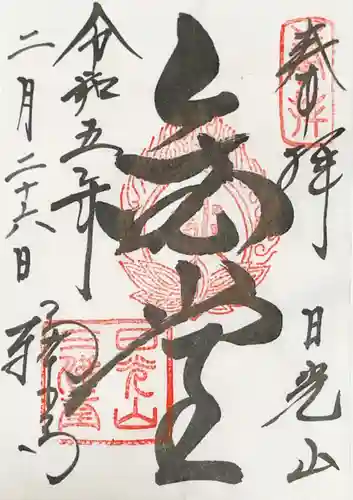 奉拝
日光山
金堂
日光山
令和五年
二月二十六日